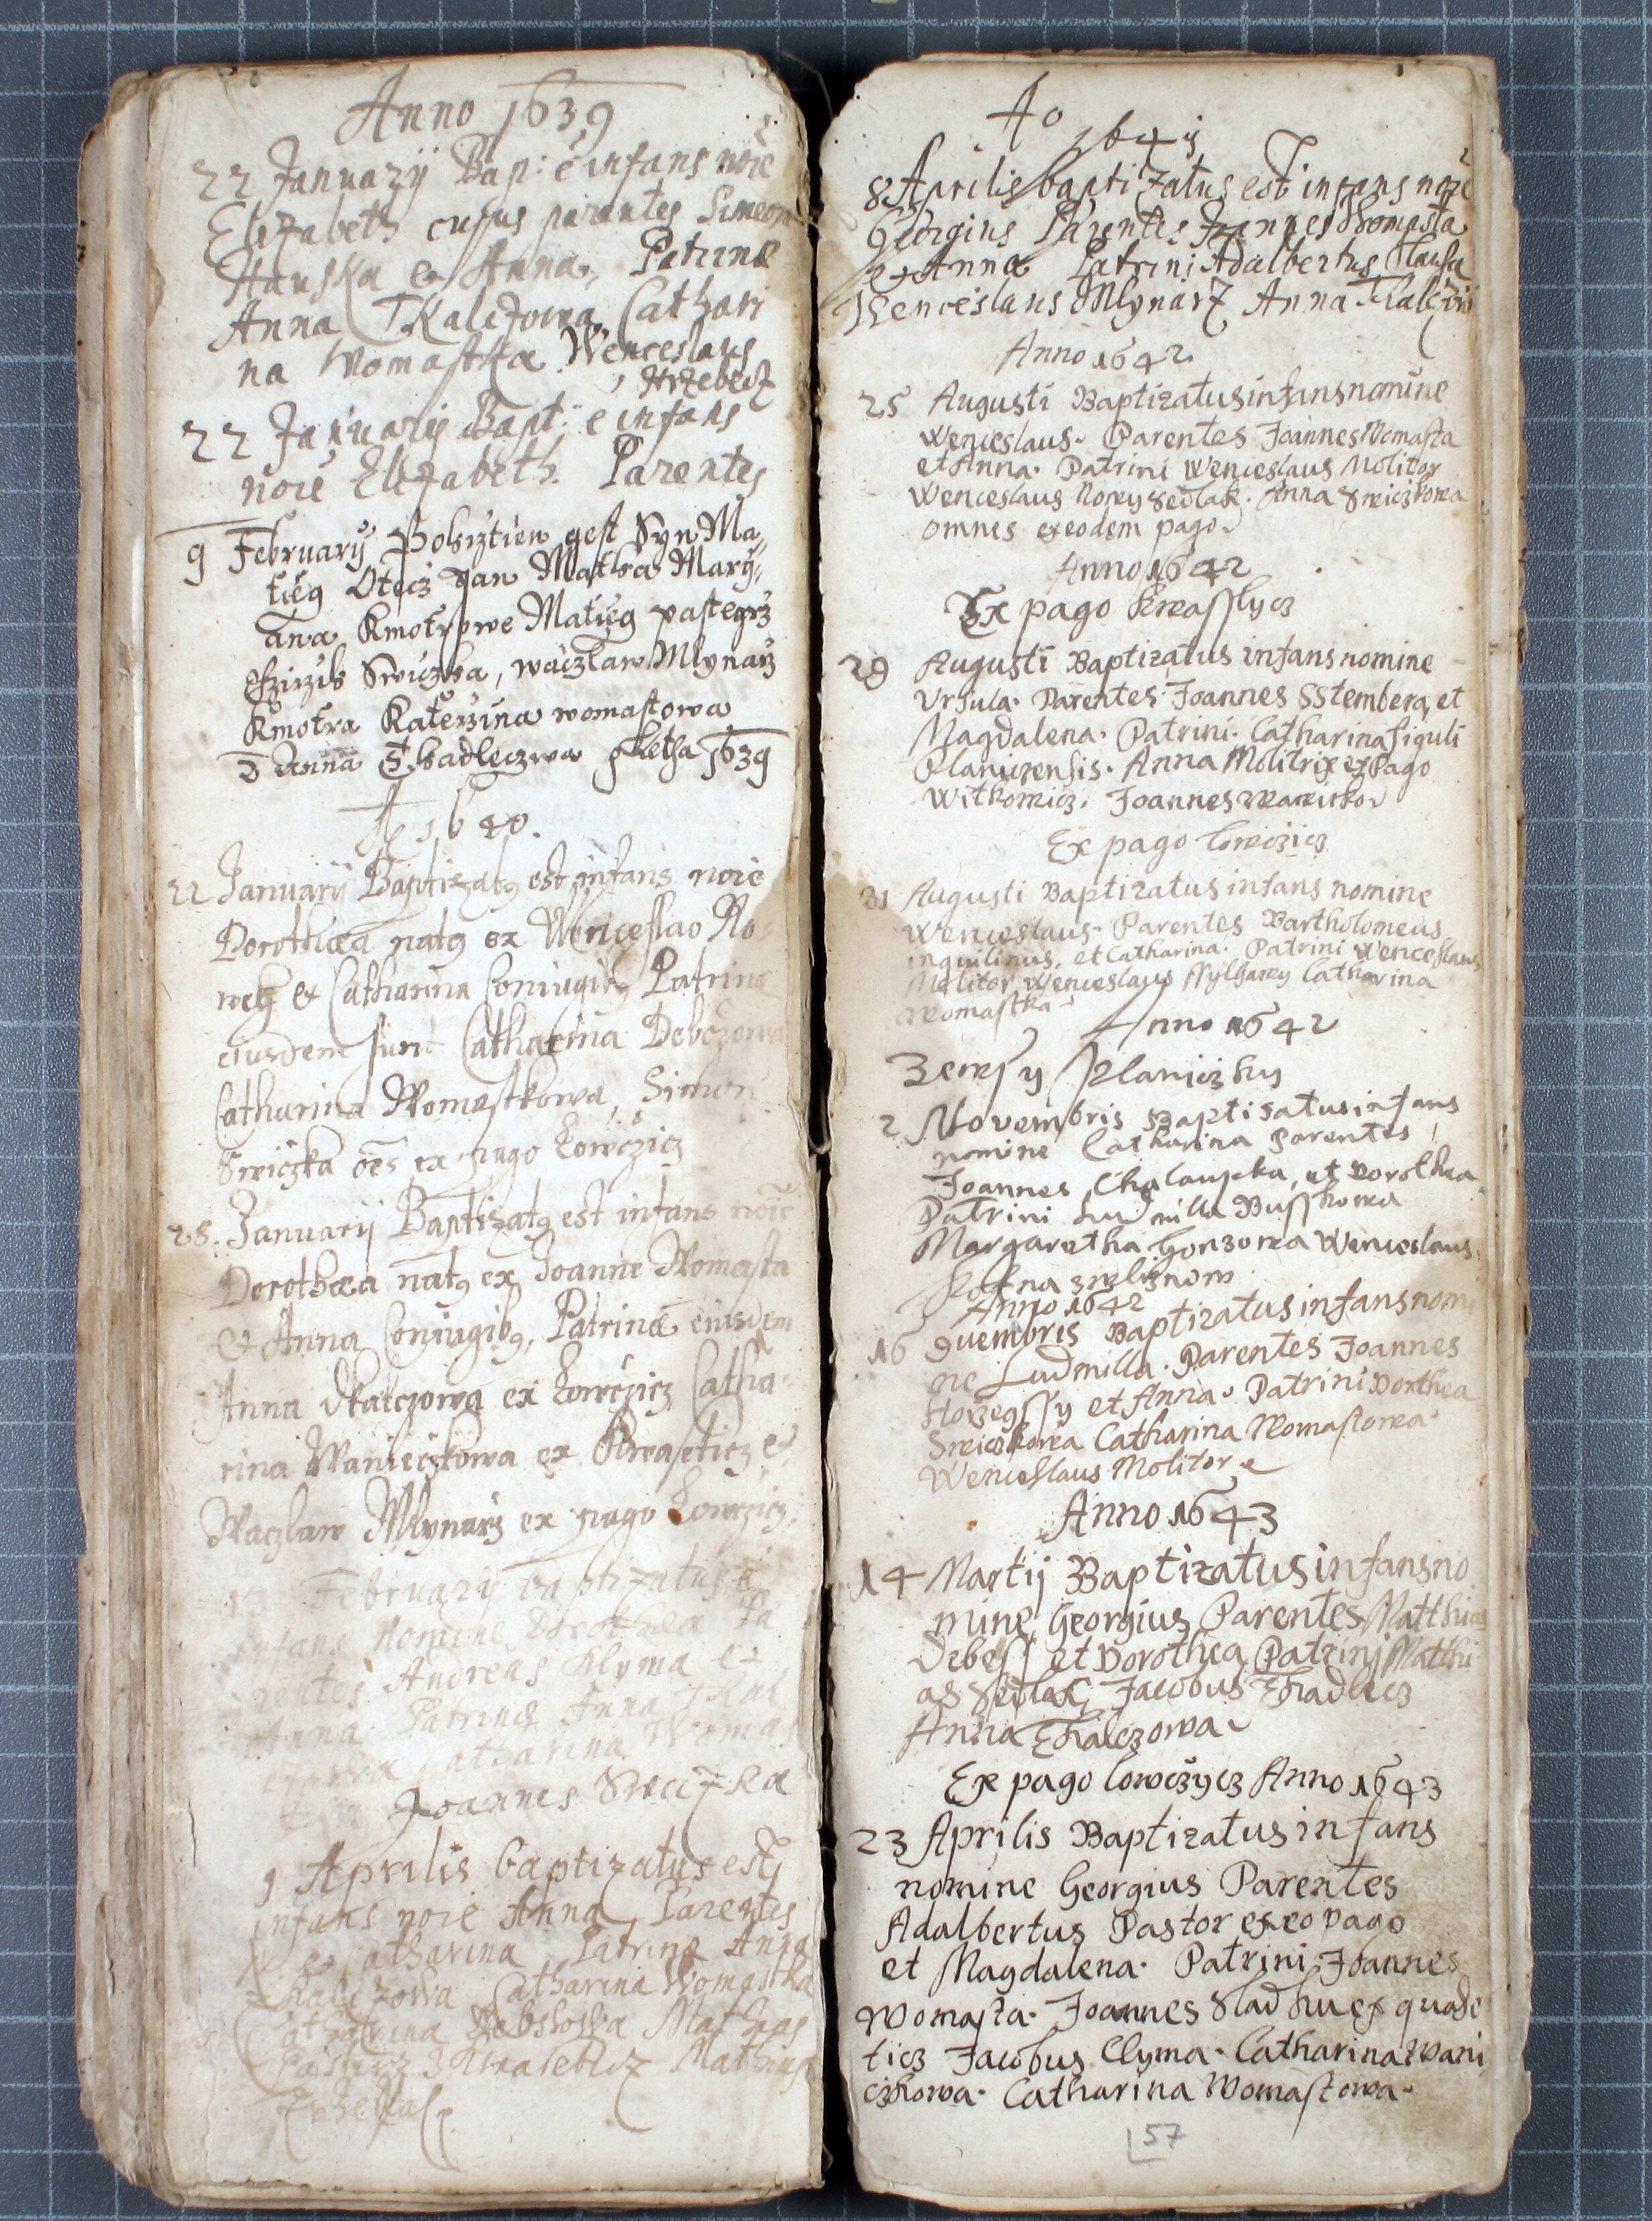 Anno 1639
22 Januarij Bap: ē infans noīe
Elizabeth cuius parentes Simeon
Hauska et Anna, Patrinæ
Anna Tkalczowa Cathari
na Womastka Wenceslaus
Hrzebecz
22 Januarij Bapt: ē infans
noīe Elizabeth. Parentes
9 February Pokrztien gest Syn Ma,
tieg Otecz Jan Matka Mary,
ana Kmotrowe Matieg pastegrz
Girzik Swiczka, waczlaw Mlynarz
Kmotra Katerzina womastowa
Anna Tkadleczwa Letha 1639
Ao 1640.
22 Januarij Baptizatq est infans noīe
Dorothæa natq ex Wenceslao No-
weg et Catharina Coniugibq Patrinæ
eiusdem sunt Catharina Debczowa
Catharina Womastkowa, Simon
Swiczka oēs ex pago Lowczicz
28. Januarij Baptizatq est infans noīe
Dorothæa natq ex Joanne Womasta
et Anna Coniugibq, Patrinæ eiusdem
Anna Tkalczowa ex Lowczicz Catha-
rina Wanieczkowa ex Kwasticz et
Waczlaw Mlynarz ex pago Lowczicz.
Februarij baptizatus ē
infans Nomine Dorothea Pa
rentes Andreas Klyma et
Anna Patrinæ Anna Tkal
Catharina Womas
Joannes Swiczka
9 Aprilis baptizatus est
infans noīe Anna Parentes
et Catharina Patrinæ Anna
Tkalczowa Catharina Womastka
Catharina Mathias
Pasterz Mathias
Ao
1641
8 Aprilis baptizatus est infans noīe
Georgius Parentes Joannes Womasta
et Anna Patrini Adalbertus
Wenceslaus Mlynarz Anna Tkalczow
Anno 1642
25 Augusti Baptizatus infans nomine
Wenceslaus. Parentes Joannes Womasta
et Anna. Patrini Wenceslaus Molitor
Wenceslaus Nowy Sedlak. Anna Swiczkowa
omnes ex eodem pago
Anno 1642
Ex pago Kwasslycz
29 Augusti Baptizatus infans nomine
Ursula. Parentes Joannes Sstemberg et
Magdalena. Patrini. Catharina figuli
Planiczensis. Anna Molitrix ex pago
Witkowicz. Joannes
Ex pago Lowczicz
31 Augusti Baptizatus infans nomine
Wenceslaus. Parentes Bartholomeus
inquilinus, et Catharina. Patrini Wenceslaus
Molitor, Wenceslaus Catharina
Womastka
Anno 1642
Zewsy Planiczky
2 Novembris Baptisatus infans
nomine Catharina Parentes
Joannes Chalaupka, et Dorothea
Patrini Ludmilla Busskowa
Margaretha Honzowa Wenceslaus

Anno 1642
16 9uembris Baptizatus infans nomi
ne Ludmilla. Parentes Joannes
Horzegssy et Anna. Patrini Dorthea
Swiczkowa Catharina Womastowa
Wenceslaus Molitor
Anno 1643
14 Martij Baptizatus infans no
mine Georgius Parentes Matthias
Debess et Dorothea Patrini Matthi
as Sedlak, Jacobus Tkadlecz
Anna Tkalczowa
Ex pago Lowczycz Anno 1643
23 Aprilis Baptizatus infans
nomine Georgius Parentes
Adalbertus Pastor ex eo pago
et Magdalena. Patrini Joannes
Womasta. Joannes Sladku ex quase
ticz Jacobus Clyma. Catharina Wani
czkowa. Catharina Womastowa.
57